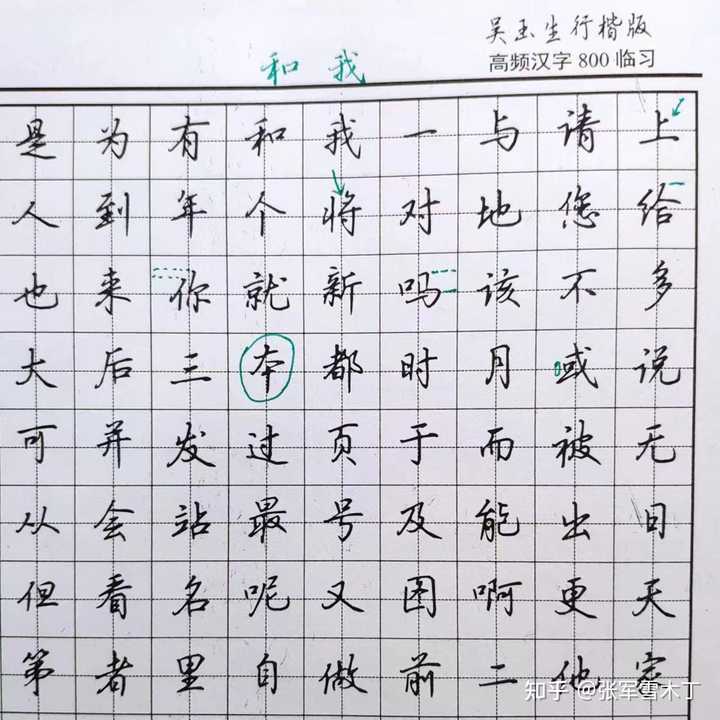 吴玉生行楷版
高频汉字800临习
和我
是为有和我一与请上
人到年个将对地您给
也来你就新吗该不多
大后三本都时月或说
可并发过页于而被无
从会站最号及能出日
但看名呢又图啊更天
第者里自做前二他家
知乎 @张军書木丁